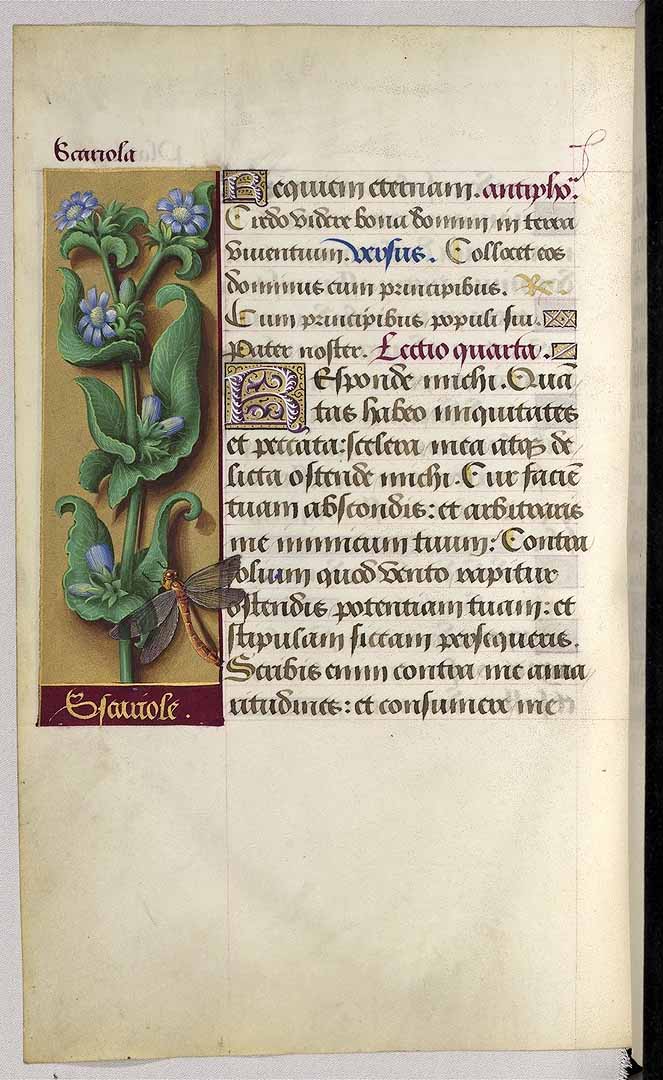 Scariola
Requiem eternam. antipho.
Credo videre bona domini in terra
viventium. versus. Collocet eos
dominus cum principibus. Rx
Cum principibus populi sui.
Pater noster. Lectio quarta.
Responde michi. Quā
tas habeo iniquitates
et peccata: scelera mea atqꝫ de
licta ostende michi. Cur faciē
tuam abscondis: et arbitraris
me inimicum tuum: Contra
folium quod vento rapitur
ostendis potentiam tuam: et
stipulam siccam persequeris.
Scribis enim contra me ama
ritudines: et consumere me
Scariole.